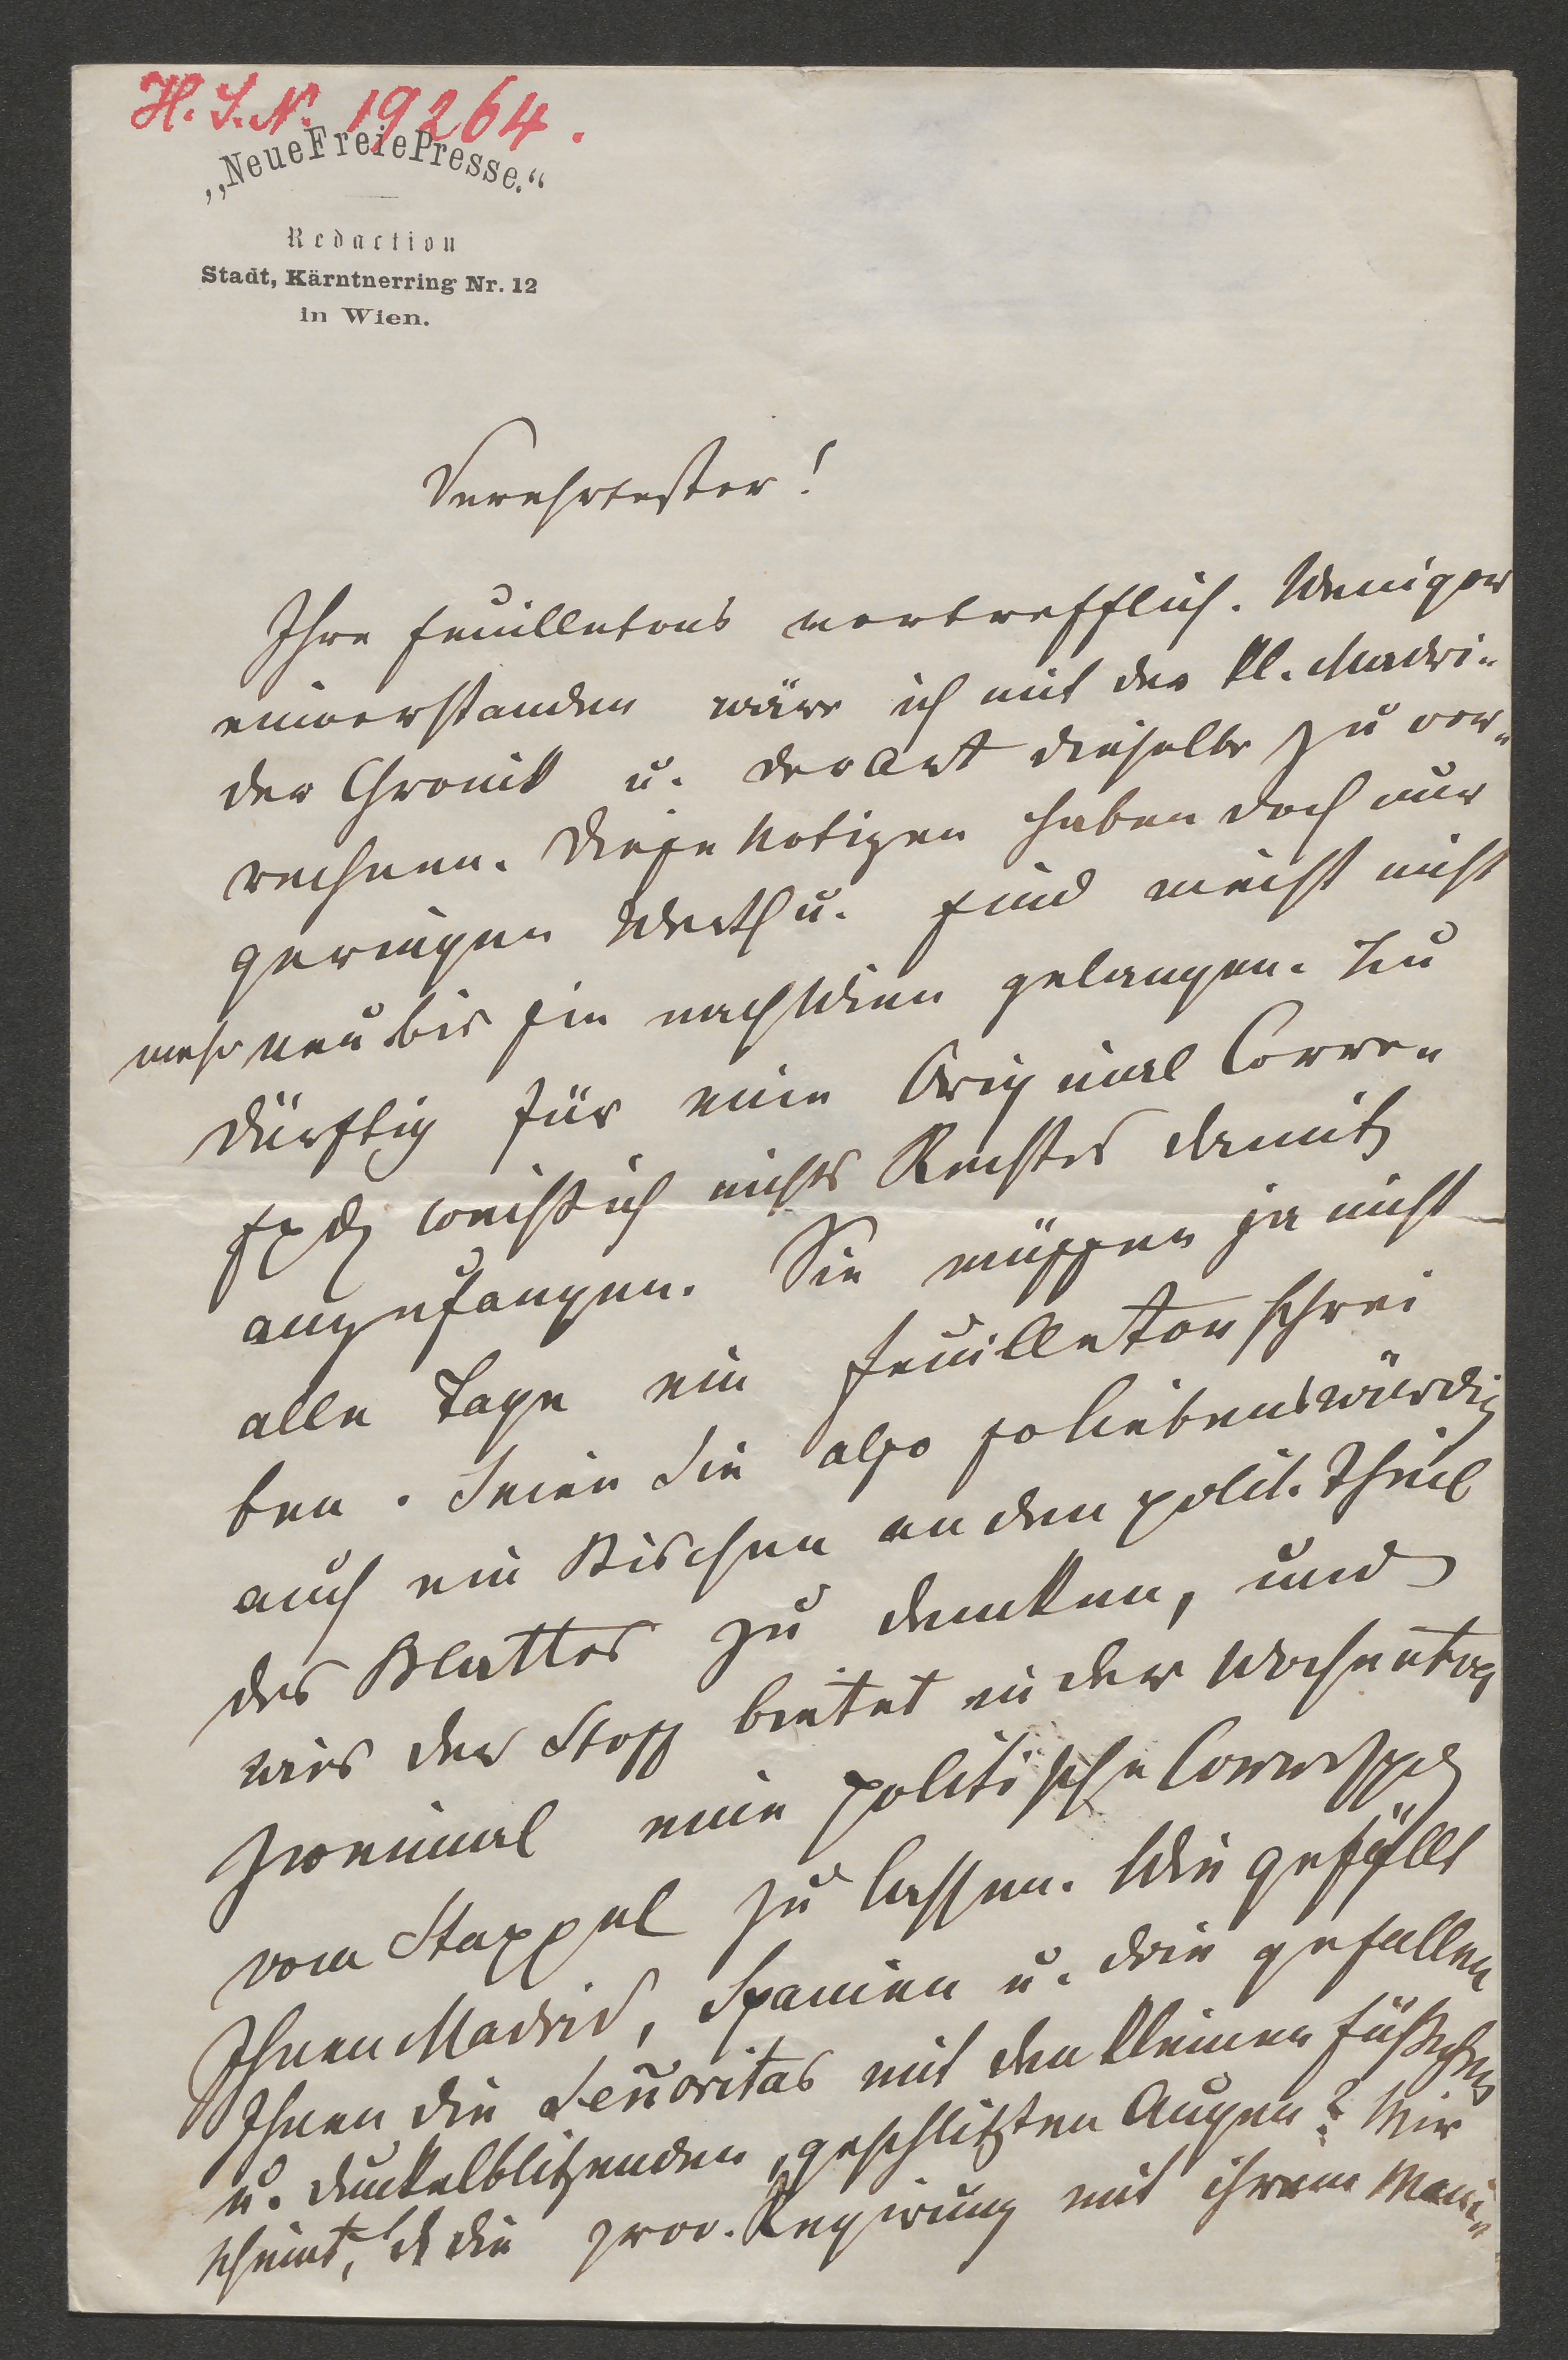 H. I. N. 19264.
„Neue Freie Presse.“
Redaction
Stadt, Kärntnerring Nr. 12
in Wien.
Verehrtester!
Ihre Feuilletons vortrefflich. Weniger
einverstanden wäre ich mit der kl. Madri-
der Chronik u. der Art dieselbe zu ver-
rechnen. Diese Notizen haben doch nur
geringen Werth u. sind meist nicht
mehr neu bis sie nach Wien gelangen. Zu
dürftig für eine Original Corre-
spdz weiß ich nichts Rechtes damit
anzufangen. Sie müssen ja nicht
alle Tage ein Feuilleton schrei
ben. Seien Sie also so liebenswürdig
auch ein Bischen an den polit. Theil
des Blattes zu denken, und
wie's der Stoff bietet in der Woche
zweimal eine politische Correspdz
vom Stappel zu lassen. Wie gefällt
Ihnen Madrid, Spanien u. wie gefallen
Ihnen die Señoritas mit den kleinen Füßchen
u. dunkelblitzenden, geschlitzten Augen? Mir
scheint, dß die prov. Regirung mit ihrem Mani-